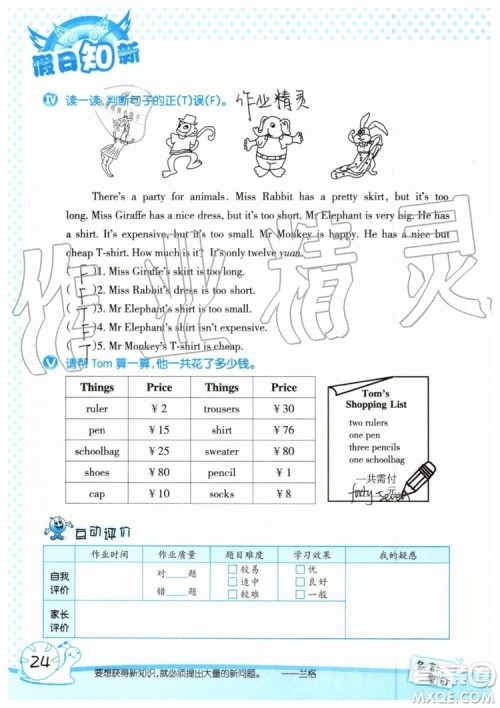 假日知新
Ⅳ 读一读,判断句子的正(T)误(F)。 作业精灵
There's a party for animals. Miss Rabbit has a pretty skirt, but it's too
long. Miss Giraffe has a nice dress, but it's too short. Mr Elephant is very big. He has
a shirt. It's expensive, but it's too small. Mr Monkey is happy. He has a nice but
cheap T-shirt. How much is it? It's only twelve yuan.
( F ) 1. Miss Giraffe's skirt is too long.
( F ) 2. Miss Rabbit's dress is too short.
( T ) 3. Mr Elephant's shirt is too small.
( F ) 4. Mr Elephant's shirt isn't expensive.
( T ) 5. Mr Monkey's T-shirt is cheap.
Ⅴ 请帮 Tom 算一算,他一共花了多少钱。
Things Price Things Price
ruler ¥ 2 trousers ¥ 30
pen ¥ 15 shirt ¥ 76
schoolbag ¥ 25 sweater ¥ 80
shoes ¥ 80 pencil ¥ 1
cap ¥ 10 socks ¥ 8
Tom's
Shopping List
two rulers
one pen
three pencils
one schoolbag
一共需付
forty-seven 元
互动评价
作业时间 作业质量 题目难度 学习效果 我的疑惑
自我评价 对____题 错____题 □较易 □适中 □较难 □优 □良好 □一般
家长评价
24
要想获得新知识,就必须提出大量的新问题。 ——兰格
作业精灵
答案圈
MXQE.COM